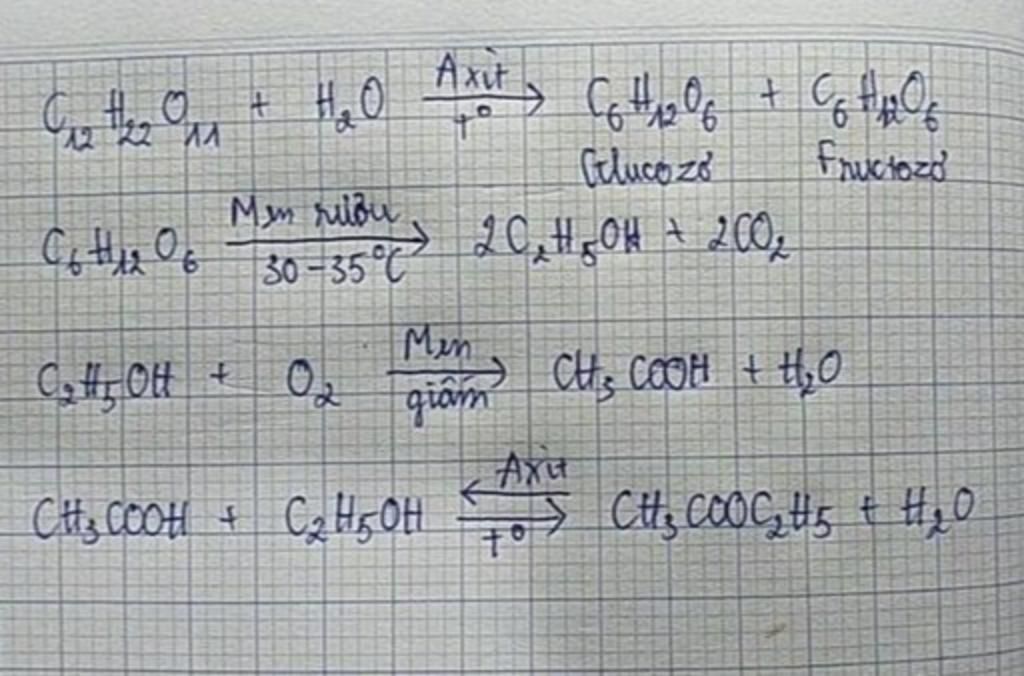 C₁₂H₂₂O₁₁ + H₂O Axit → t° C₆H₁₂O₆ + C₆H₁₂O₆
Glucozơ Fructozơ
C₆H₁₂O₆ Men rượu → 30-35°C 2C₂H₅OH + 2CO₂
C₂H₅OH + O₂ Men → giấm CH₃COOH + H₂O
CH₃COOH + C₂H₅OH Axit ⇄ t° CH₃COOC₂H₅ + H₂O